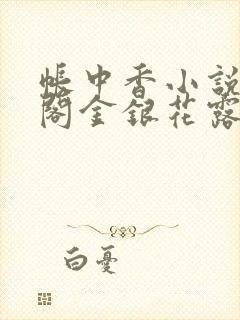 帳中香小說
閣金銀花露
白憂